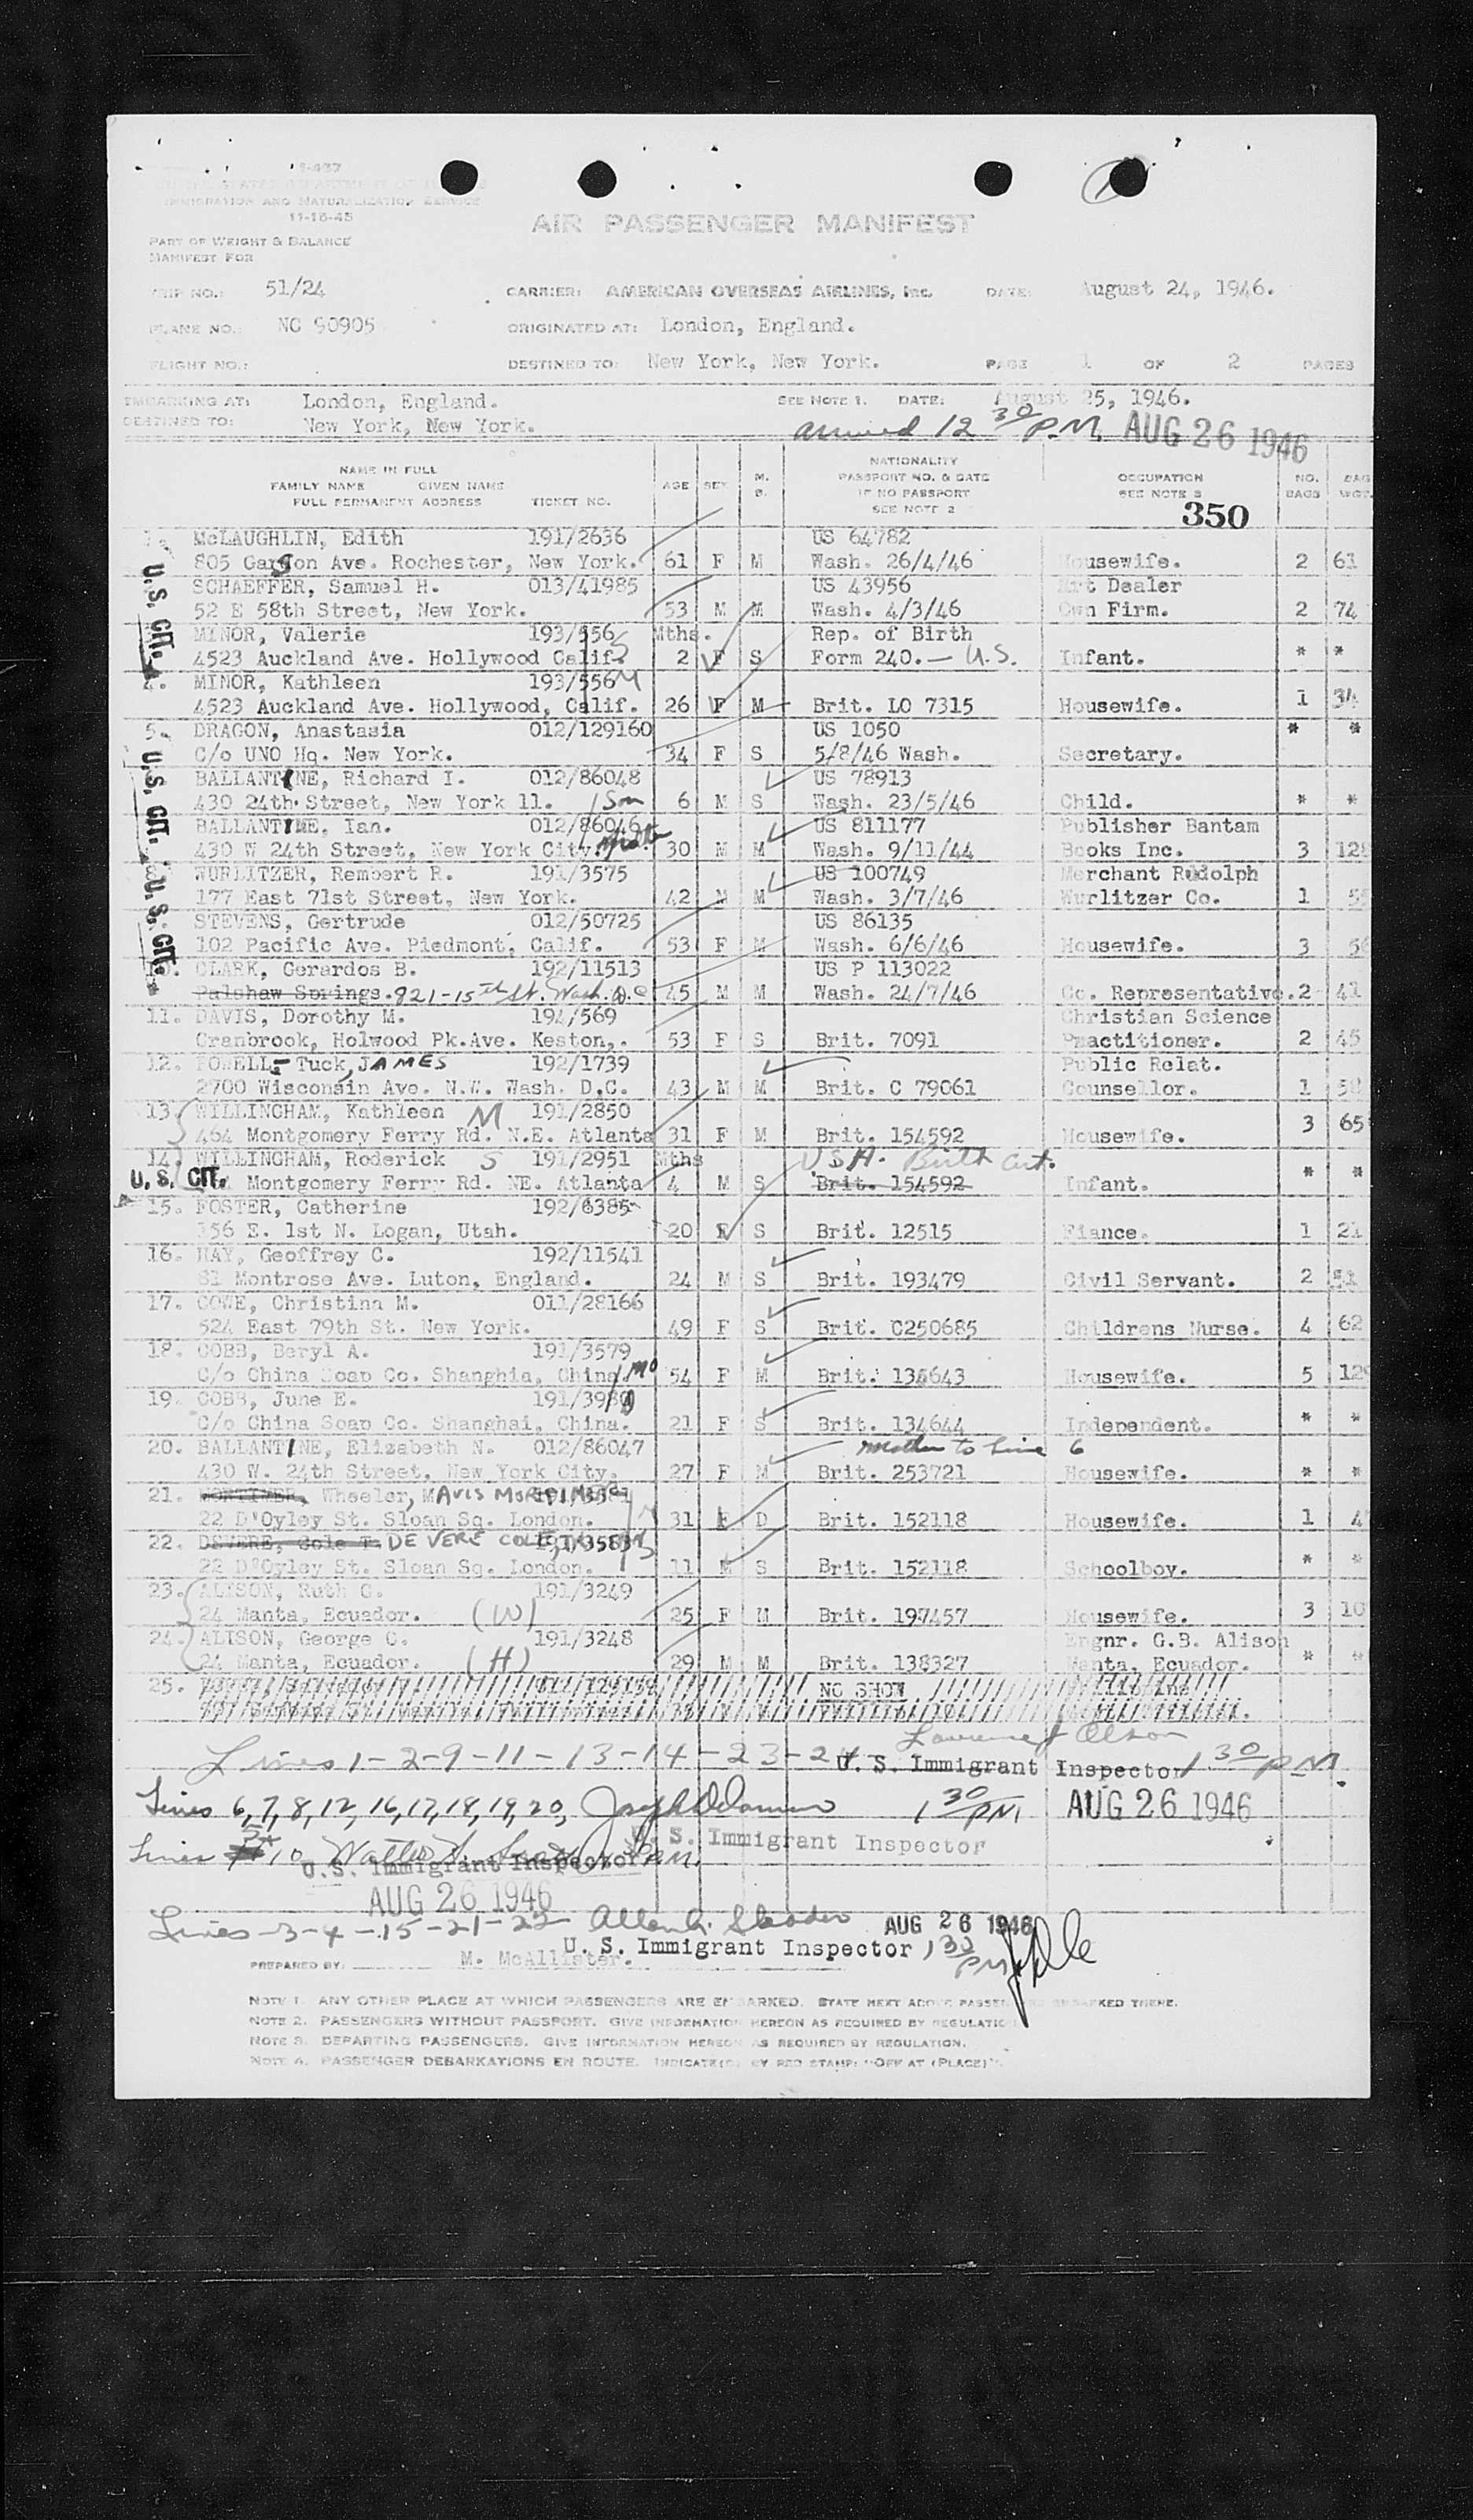 I-457
UNITED STATES DEPARTMENT OF JUSTICE
IMMIGRATION AND NATURALIZATION SERVICE
11-15-45
AIR PASSENGER MANIFEST
PART OF WEIGHT & BALANCE
MANIFEST FOR
TRIP NO.: 51/24 CARRIER: AMERICAN OVERSEAS AIRLINES, Inc. DATE: August 24, 1946.
PLANE NO.: NC 90905 ORIGINATED AT: London, England.
FLIGHT NO.: DESTINED TO: New York, New York. PAGE 1 OF 2 PAGES
EMBARKING AT: London, England. SEE NOTE 1. DATE: August 25, 1946.
DESTINED TO: New York, New York. arrived 12 30 P.M. AUG 26 1946
NAME IN FULL
FAMILY NAME GIVEN NAME
FULL PERMANENT ADDRESS TICKET NO. AGE SEX M. S. NATIONALITY PASSPORT NO. & DATE IF NO PASSPORT SEE NOTE 2 OCCUPATION SEE NOTE 3 NO. BAGS BAG WGT.
350
McLAUGHLIN, Edith 191/2636 US 64782
805 Garson Ave. Rochester, New York. 61 F M Wash. 26/4/46 Housewife. 2 61
SCHAEFFER, Samuel H. 013/41985 US 43956 Art Dealer
52 E 58th Street, New York. 53 M M Wash. 4/3/46 Own Firm. 2 74
MINOR, Valerie 193/556 Mths. Rep. of Birth
4523 Auckland Ave. Hollywood Calif. 2 F S Form 240. — U.S. Infant. * *
4. MINOR, Kathleen 193/556 M
4523 Auckland Ave. Hollywood, Calif. 26 F M Brit. LO 7315 Housewife. 1 34
5. DRAGON, Anastasia 012/129160 US 1050 * *
C/o UNO Hq. New York. 34 F S 5/8/46 Wash. Secretary.
BALLANTINE, Richard I. 012/86048 US 78913
430 24th Street, New York 11. Son 6 M S Wash. 23/5/46 Child. * *
BALLANTINE, Ian. 012/86046 US 811177 Publisher Bantam
430 W 24th Street, New York City. 30 M M Wash. 9/11/44 Books Inc. 3 128
WURLITZER, Rembert R. 191/3575 US 100749 Merchant Rudolph
177 East 71st Street, New York. 42 M M Wash. 3/7/46 Wurlitzer Co. 1
STEVENS, Gertrude 012/50725 US 86135
102 Pacific Ave. Piedmont, Calif. 53 F M Wash. 6/6/46 Housewife. 3
10. CLARK, Gerardos B. 192/11513 US P 113022
Palshaw Springs. 821-15th St. Wash. D.C 45 M M Wash. 24/7/46 Co. Representative. 2 41
11. DAVIS, Dorothy M. 194/569 Christian Science
Cranbrook, Holwood Pk.Ave. Keston,. 53 F S Brit. 7091 Practitioner. 2 45
12. POWELL-Tuck, JAMES 192/1739 Public Relat.
2700 Wisconsin Ave. N.W. Wash. D.C. 43 M M Brit. C 79061 Counsellor. 1
13. WILLINGHAM, Kathleen M 191/2850
464 Montgomery Ferry Rd. N.E. Atlanta 31 F M Brit. 154592 Housewife. 3 65
14. WILLINGHAM, Roderick S 191/2951 Mths USA. Birth Cert.
U.S. CIT. Montgomery Ferry Rd. NE. Atlanta 4 M S Brit. 154592 Infant. * *
15. FOSTER, Catherine 192/6385
156 E. 1st N. Logan, Utah. 20 F S Brit. 12515 Fiance. 1 21
16. HAY, Geoffrey C. 192/11541
81 Montrose Ave. Luton, England. 24 M S Brit. 193479 Civil Servant. 2
17. COWE, Christina M. 011/28166
524 East 79th St. New York. 49 F S Brit. C250685 Childrens Nurse. 4 62
18. COBB, Beryl A. 191/3579
C/o China Soap Co. Shanghia, China. Mo 54 F M Brit. 134643 Housewife. 5
19. COBB, June E. 191/3980
C/o China Soap Co. Shanghai, China. 21 F S Brit. 134644 Independent. * *
20. BALLANTINE, Elizabeth N. 012/86047 mother to line 6
430 W. 24th Street, New York City. 27 F M Brit. 253721 Housewife. * *
21. MORTIMER, Wheeler, MAVIS MORTIMER
22 D'Oyley St. Sloan Sq. London. 31 F D Brit. 152118 Housewife. 1 4
22. DEVERE, Cole T. DE VERE COLE,
22 D'Oyley St. Sloan Sq. London. 11 M S Brit. 152118 Schoolboy. * *
23. ALISON, Ruth C. 191/3249
24 Manta, Ecuador. (W) 25 F M Brit. 197457 Housewife. 3 10
24. ALISON, George C. 191/3248 Engnr. G.B. Alison
24 Manta, Ecuador. (H) 29 M M Brit. 138327 Manta, Ecuador. * *
25. NO SHOW
U.S. CIT.
U.S. CIT.
U.S. CIT.
Lines 1-2-9-11-13-14-23-24 U. S. Immigrant Inspector 1 30 PM
Lines 6,7,8,12,16,17,18,19,20, 1 30 PM AUG 26 1946
U. S. Immigrant Inspector
Lines 5 + 10
U.S. Immigrant Inspector P.M.
AUG 26 1946
Lines-3-4-15-21-22 AUG 26 1946
U. S. Immigrant Inspector 1 30 PM
PREPARED BY: M. McAllister.
NOTE 1. ANY OTHER PLACE AT WHICH PASSENGERS ARE EMBARKED. STATE NEXT ABOVE PASSENGERS EMBARKED THERE.
NOTE 2. PASSENGERS WITHOUT PASSPORT. GIVE INFORMATION HEREON AS REQUIRED BY REGULATION
NOTE 3. DEPARTING PASSENGERS. GIVE INFORMATION HEREON AS REQUIRED BY REGULATION.
NOTE 4. PASSENGER DEBARKATIONS EN ROUTE. INDICATE(D) BY RED STAMP: "OFF AT (PLACE)".